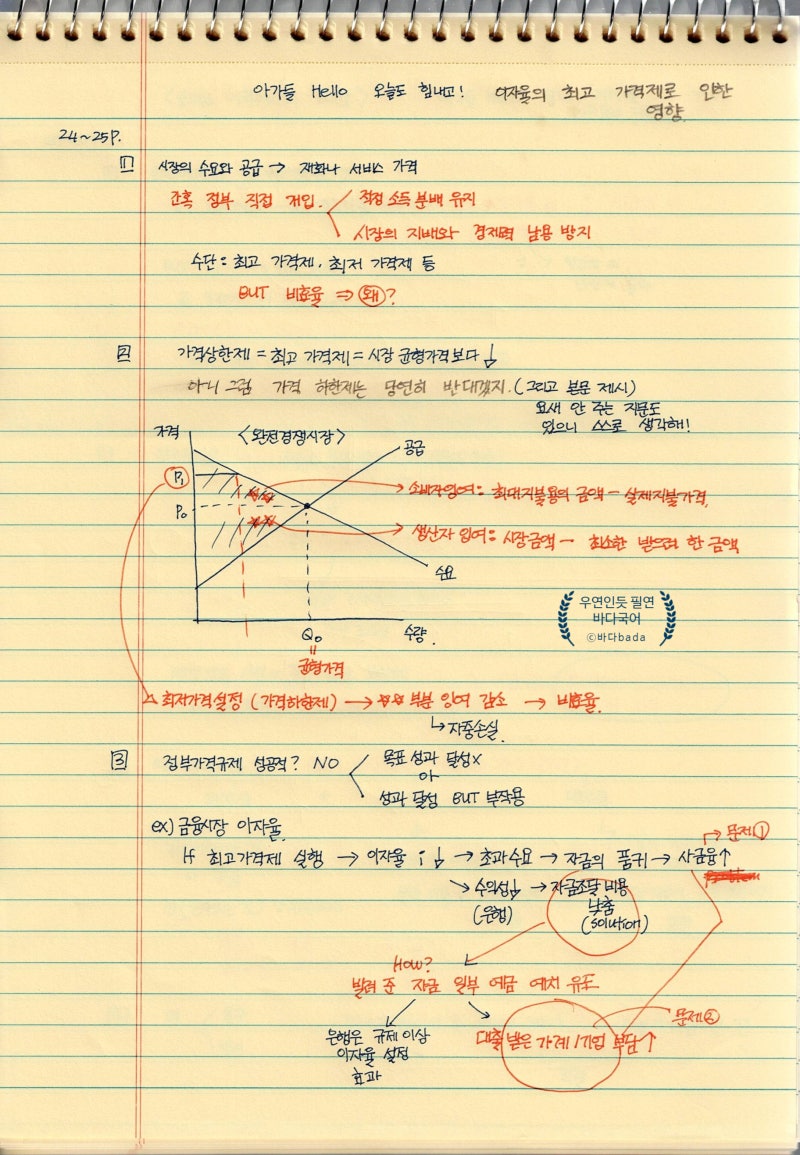 아가들 Hello 오늘도 힘내고! 이자율의 최고 가격제로 인한
영향
24~25P.
1 시장의 수요와 공급 → 재화나 서비스 가격
간혹 정부 직접 개입. 적정 소득 분배 유지
시장의 지배와 경제력 남용 방지
수단 : 최고 가격제, 최저 가격제 등
BUT 비효율 ⇒ 왜?
2 가격상한제 = 최고 가격제 = 시장 균형가격보다 ↓
아니 그럼 가격 하한제는 당연히 반대겠지. (그리고 본문 제시)
요새 안 주는 지문도
있으니 스스로 생각해!
가격 <완전경쟁시장> 공급
P₁ 소비자잉여 : 최대지불용의 금액 - 실제지불가격,
P₀ 생산자 잉여 : 시장금액 - 최소한 받으려 한 금액
수요
우연인듯 필연
바다국어
©바다bada
Q₀ 수량.
=
균형가격
최저가격설정 (가격하한제) → ☆☆ 부분 잉여 감소 → 비효율.
↳ 자중손실.
3 정부가격규제 성공적? NO 목표 성과 달성 X
or
성과 달성 BUT 부작용
ex) 금융시장 이자율.
→ 문제①
If 최고가격제 실행 → 이자율 : ↓ → 초과수요 → 자금의 품귀 → 사금융↑
↘ 수익성↓ → 자금조달 비용
(은행) 낮춤
(solution)
How?
빌려 준 자금 일부 예금 예치 유도
문제②
은행은 규제 이상 대출 받은 가계/기업 부담↑
이자율 설정
효과